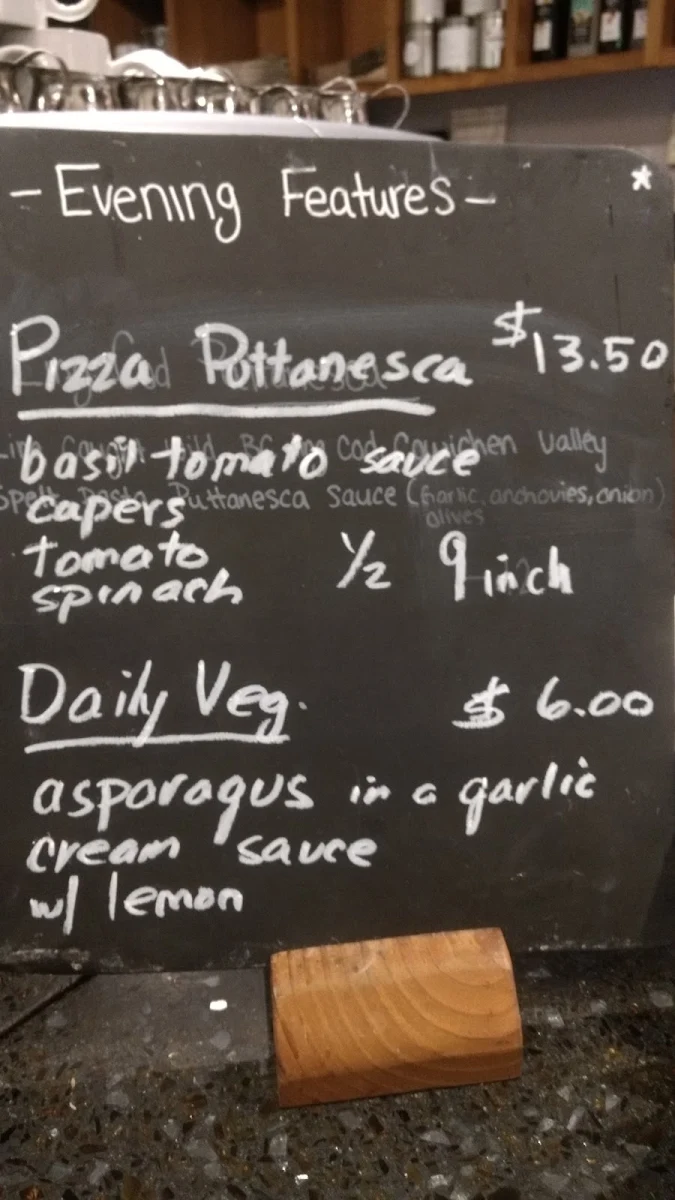 - Evening Features - *
Pizza Puttanesca $13.50
basil tomato sauce
Cod Cowichen Valley
Puttanesca Sauce (garlic, anchovies, onion)
capers
olives
tomato
spinach
1/2 9 inch
Daily Veg. $6.00
asparagus in a garlic
cream sauce
w/ lemon